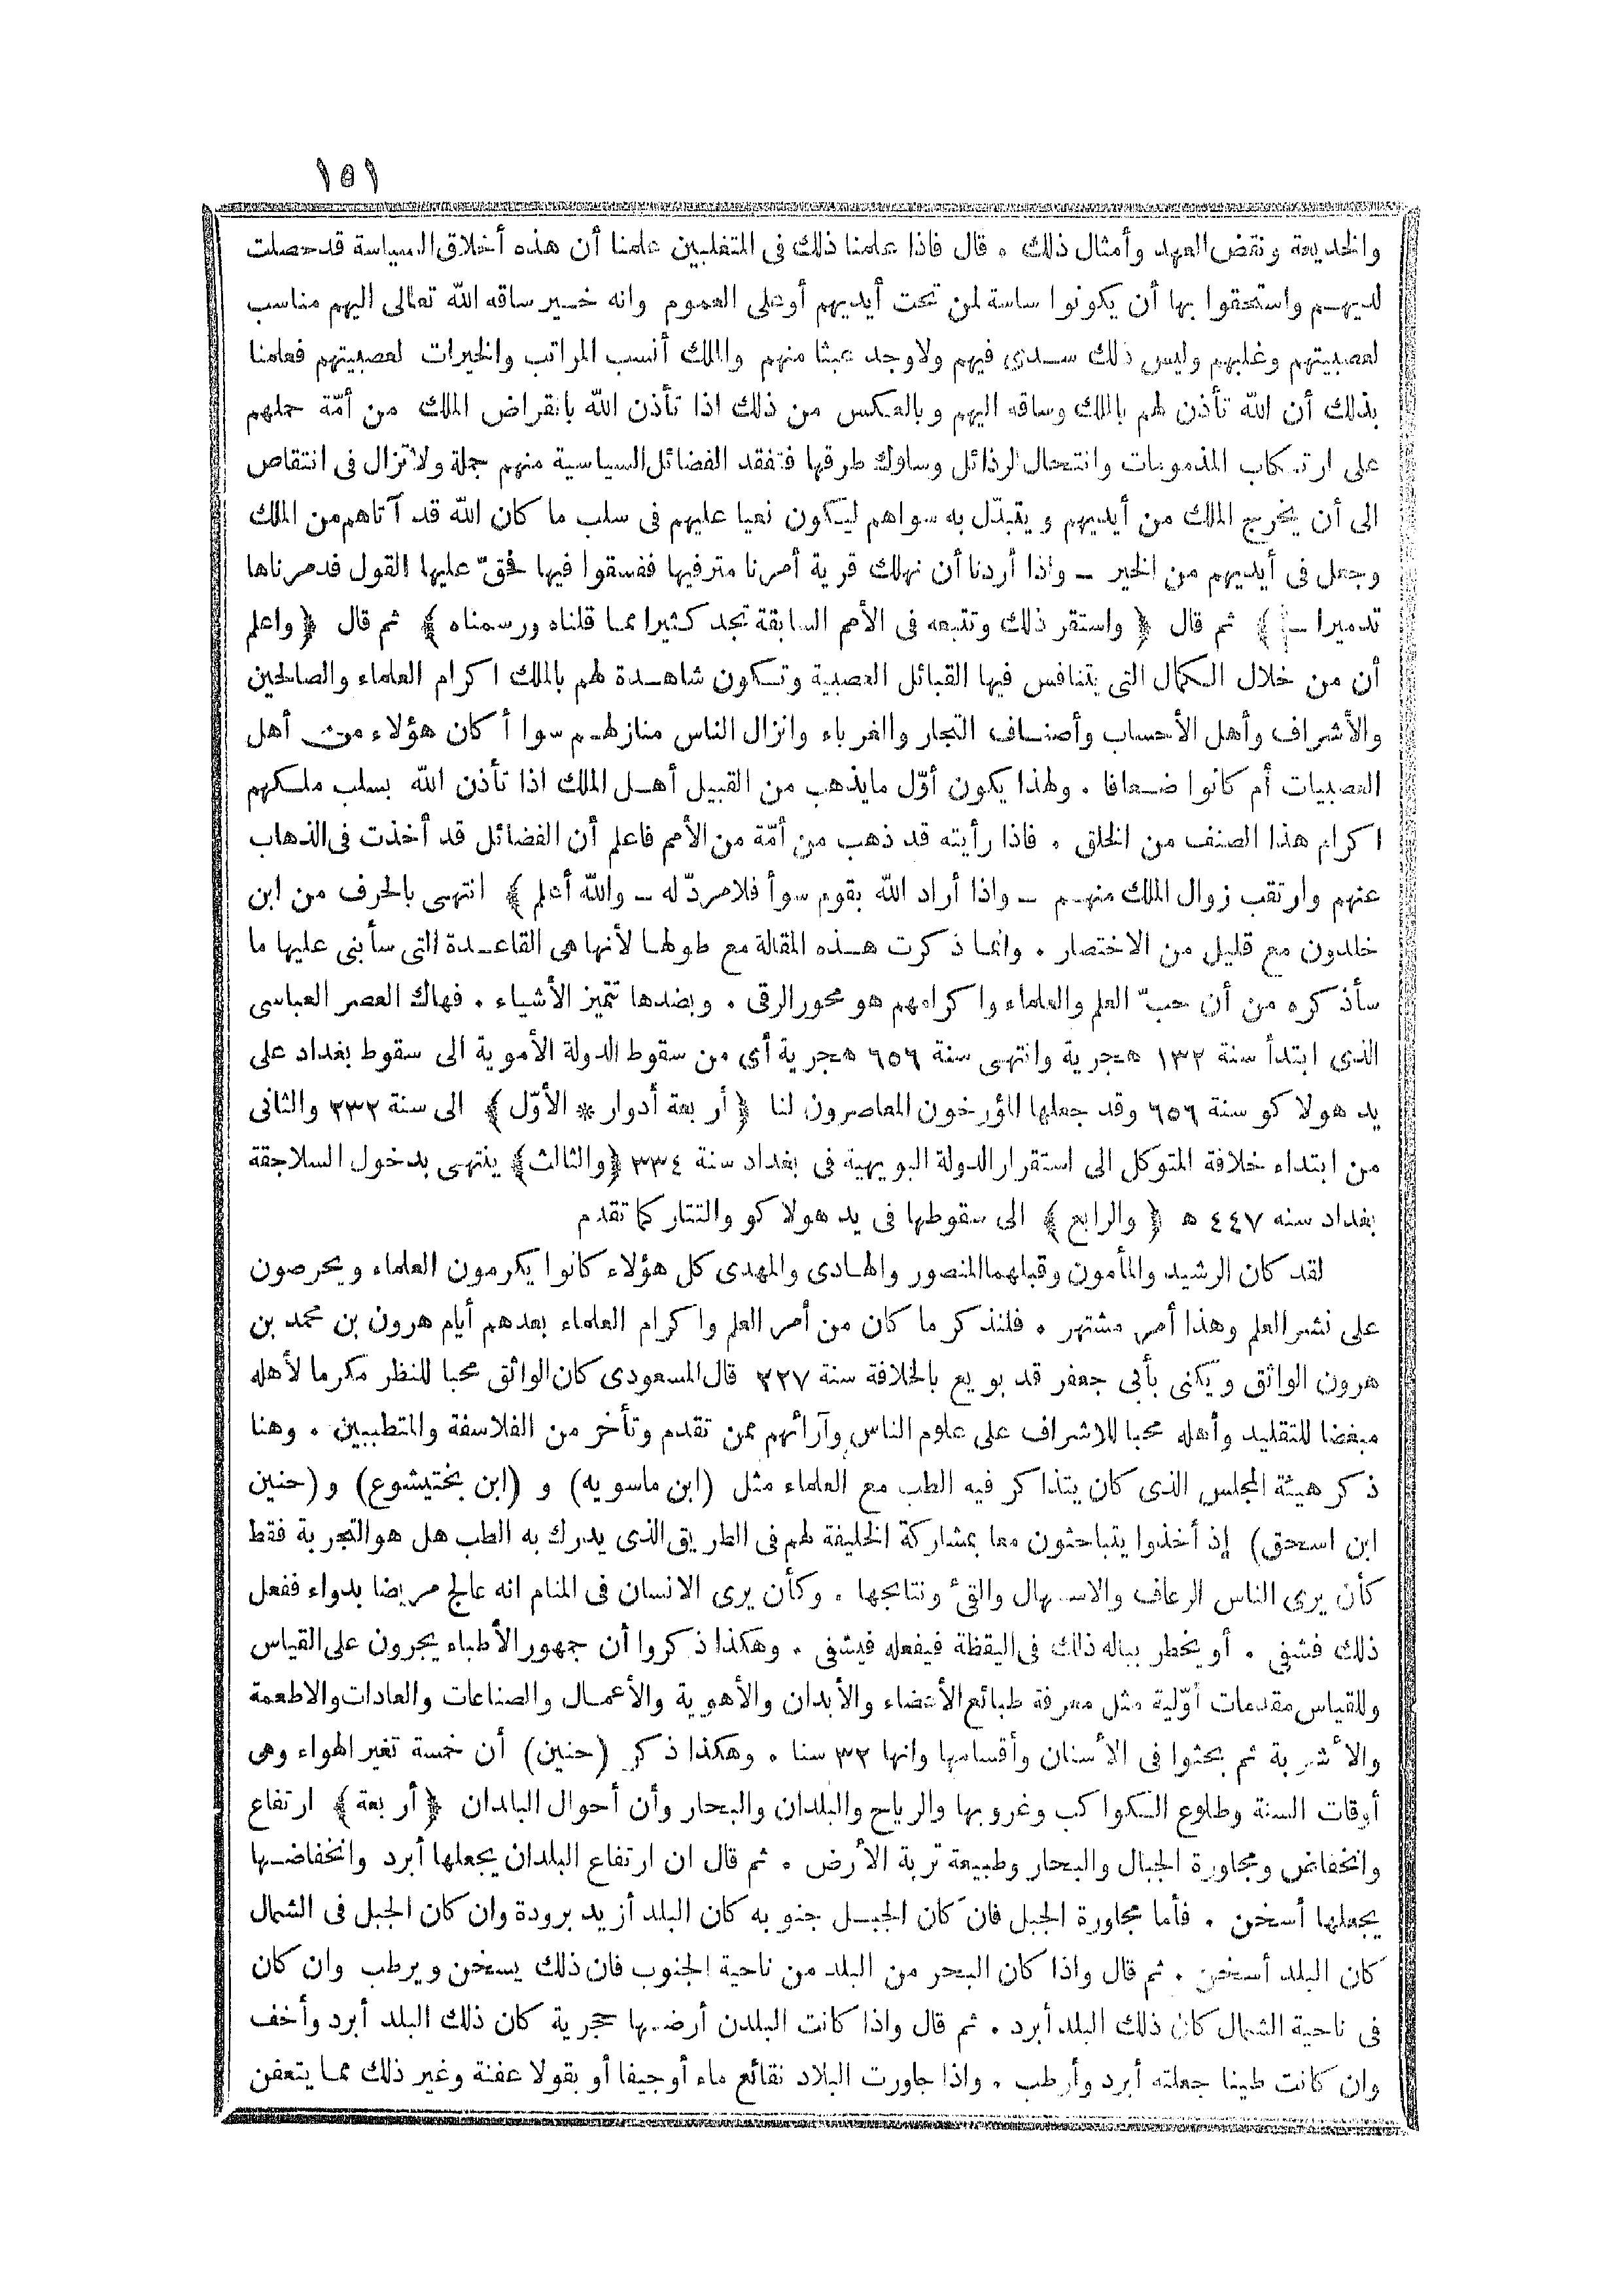 ١٥١
والخديعة ونقض العهد وأمثال ذلك . قال فاذا علمنا ذلك فى المتغلبين علمنا أن هذه أخلاق السياسة قد حصلت
لديهم واستحقوا بها أن يكونوا ساسة لمن تحت أيديهم أو على العموم وانه خير ساقه الله تعالى اليهم مناسب
لعصبيتهم وغلبهم وليس ذلك سدى فيهم ولا وجد عبثا منهم والملك أنسب المراتب والخيرات لعصبيتهم فعلمنا
بذلك أن الله تأذن لهم بالملك وساقه اليهم وبالعكس من ذلك اذا تأذن الله بانقراض الملك من أمّة حملهم
على ارتكاب المذمومات وانتحال الرذائل وسلوك طرقها فتفقد الفضائل السياسية منهم جملة ولا تزال فى انتقاص
الى أن يخرج الملك من أيديهم ويتبدّل به سواهم ليكون نعيا عليهم فى سلب ما كان الله قد آتاهم من الملك
وجعل فى أيديهم من الخير ــ واذا أردنا أن نهلك قرية أمرنا مترفيها ففسقوا فيها فحقّ عليها القول فدمرناها
تدميرا ــ ﴾ ثم قال ﴿ واستقر ذلك وتتبعه فى الأمم السابقة تجد كثيرا مما قلناه ورسمناه ﴾ ثم قال ﴿ واعلم
أن من خلال الكمال التى يتنافس فيها القبائل العصبية وتكون شاهدة لهم بالملك اكرام العلماء والصالحين
والأشراف وأهل الأحساب وأصناف التجار والغرباء وانزال الناس منازلهم سوا أكان هؤلاء من أهل
العصبيات أم كانوا ضعافا . ولهذا يكون أوّل مايذهب من القبيل أهل الملك اذا تأذن الله بسلب ملكهم
اكرام هذا الصنف من الخلق . فاذا رأيته قد ذهب من أمّة من الأمم فاعلم أن الفضائل قد أخذت فى الذهاب
عنهم وارتقب زوال الملك منهم ــ واذا أراد الله بقوم سوأ فلا مردّ له ــ والله أعلم ﴾ انتهى بالحرف من ابن
خلدون مع قليل من الاختصار . وانما ذكرت هذه المقالة مع طولها لأنها هى القاعدة التى سأبنى عليها ما
سأذكره من أن حبّ العلم والعلماء واكرامهم هو محور الرقى . وبضدها تتميز الأشياء . فهاك العصر العباسى
الذى ابتدأ سنة ١٣٢ هجرية وانتهى سنة ٦٥٦ هجرية أى من سقوط الدولة الأموية الى سقوط بغداد على
يد هولاكو سنة ٦٥٦ وقد جعلها المؤرخون المعاصرون لنا ﴿ أربعة أدوار * الأوّل ﴾ الى سنة ٢٣٢ والثانى
من ابتداء خلافة المتوكل الى استقرار الدولة البويهية فى بغداد سنة ٣٣٤ ﴿ والثالث ﴾ ينتهى بدخول السلاجقة
بغداد سنه ٤٤٧ ه ﴿ والرابع ﴾ الى سقوطها فى يد هولاكو والتتار كما تقدم
لقد كان الرشيد والمأمون وقبلهما المنصور والهادى والمهدى كل هؤلاء كانوا يكرمون العلماء ويحرصون
على نشر العلم وهذا أمر مشتهر . فلنذكر ما كان من أمر العلم واكرام العلماء بعدهم أيام هرون بن محمد بن
هرون الواثق ويكنى بأبى جعفر قد بويع بالخلافة سنة ٢٢٧ قال المسعودى كان الواثق محبا للنظر مكرما لأهله
مبغضا للتقليد وأهله محبا للاشراف على علوم الناس وآرائهم ممن تقدم وتأخر من الفلاسفة والمتطببين . وهنا
ذكر هيئة المجلس الذى كان يتذاكر فيه الطب مع العلماء مثل (ابن ماسويه) و (ابن بختيشوع) و (حنين
ابن اسحق) إذ أخذوا يتباحثون معا بمشاركة الخليفة لهم فى الطريق الذى يدرك به الطب هل هو التجربة فقط
كأن يرى الناس الرعاف والاسهال والقئ ونتائجها . وكأن يرى الانسان فى المنام انه عالج مريضا بدواء ففعل
ذلك فشفى . أو يخطر بباله ذلك فى اليقظة فيفعله فيشفى . وهكذا ذكروا أن جمهور الأطباء يجرون على القياس
وللقياس مقدمات أوّلية مثل معرفة طبائع الأعضاء والأبدان والأهوية والأعمال والصناعات والعادات والاطعمة
والأشربة ثم بحثوا فى الأسنان وأقسامها وانها ٣٢ سنا . وهكذا ذكر (حنين) أن خمسة تغير الهواء وهى
أوقات السنة وطلوع الكواكب وغروبها والرياح والبلدان والبحار وأن أحوال البلدان ﴿ أربعة ﴾ ارتفاع
وانخفاض ومجاورة الجبال والبحار وطبيعة تربة الأرض . ثم قال ان ارتفاع البلدان يجعلها أبرد وانخفاضها
يجعلها أسخن . فأما مجاورة الجبل فان كان الجبل جنوبه كان البلد أزيد برودة وان كان الجبل فى الشمال
كان البلد أسخن . ثم قال واذا كان البحر من البلد من ناحية الجنوب فان ذلك يسخن ويرطب وان كان
فى ناحية الشمال كان ذلك البلد أبرد . ثم قال واذا كانت البلدن أرضها حجرية كان ذلك البلد أبرد وأخف
وان كانت طينا جعلته أبرد وأرطب . واذا جاورت البلاد نقائع ماء أو جيفا أو بقولا عفنة وغير ذلك مما يتعفن